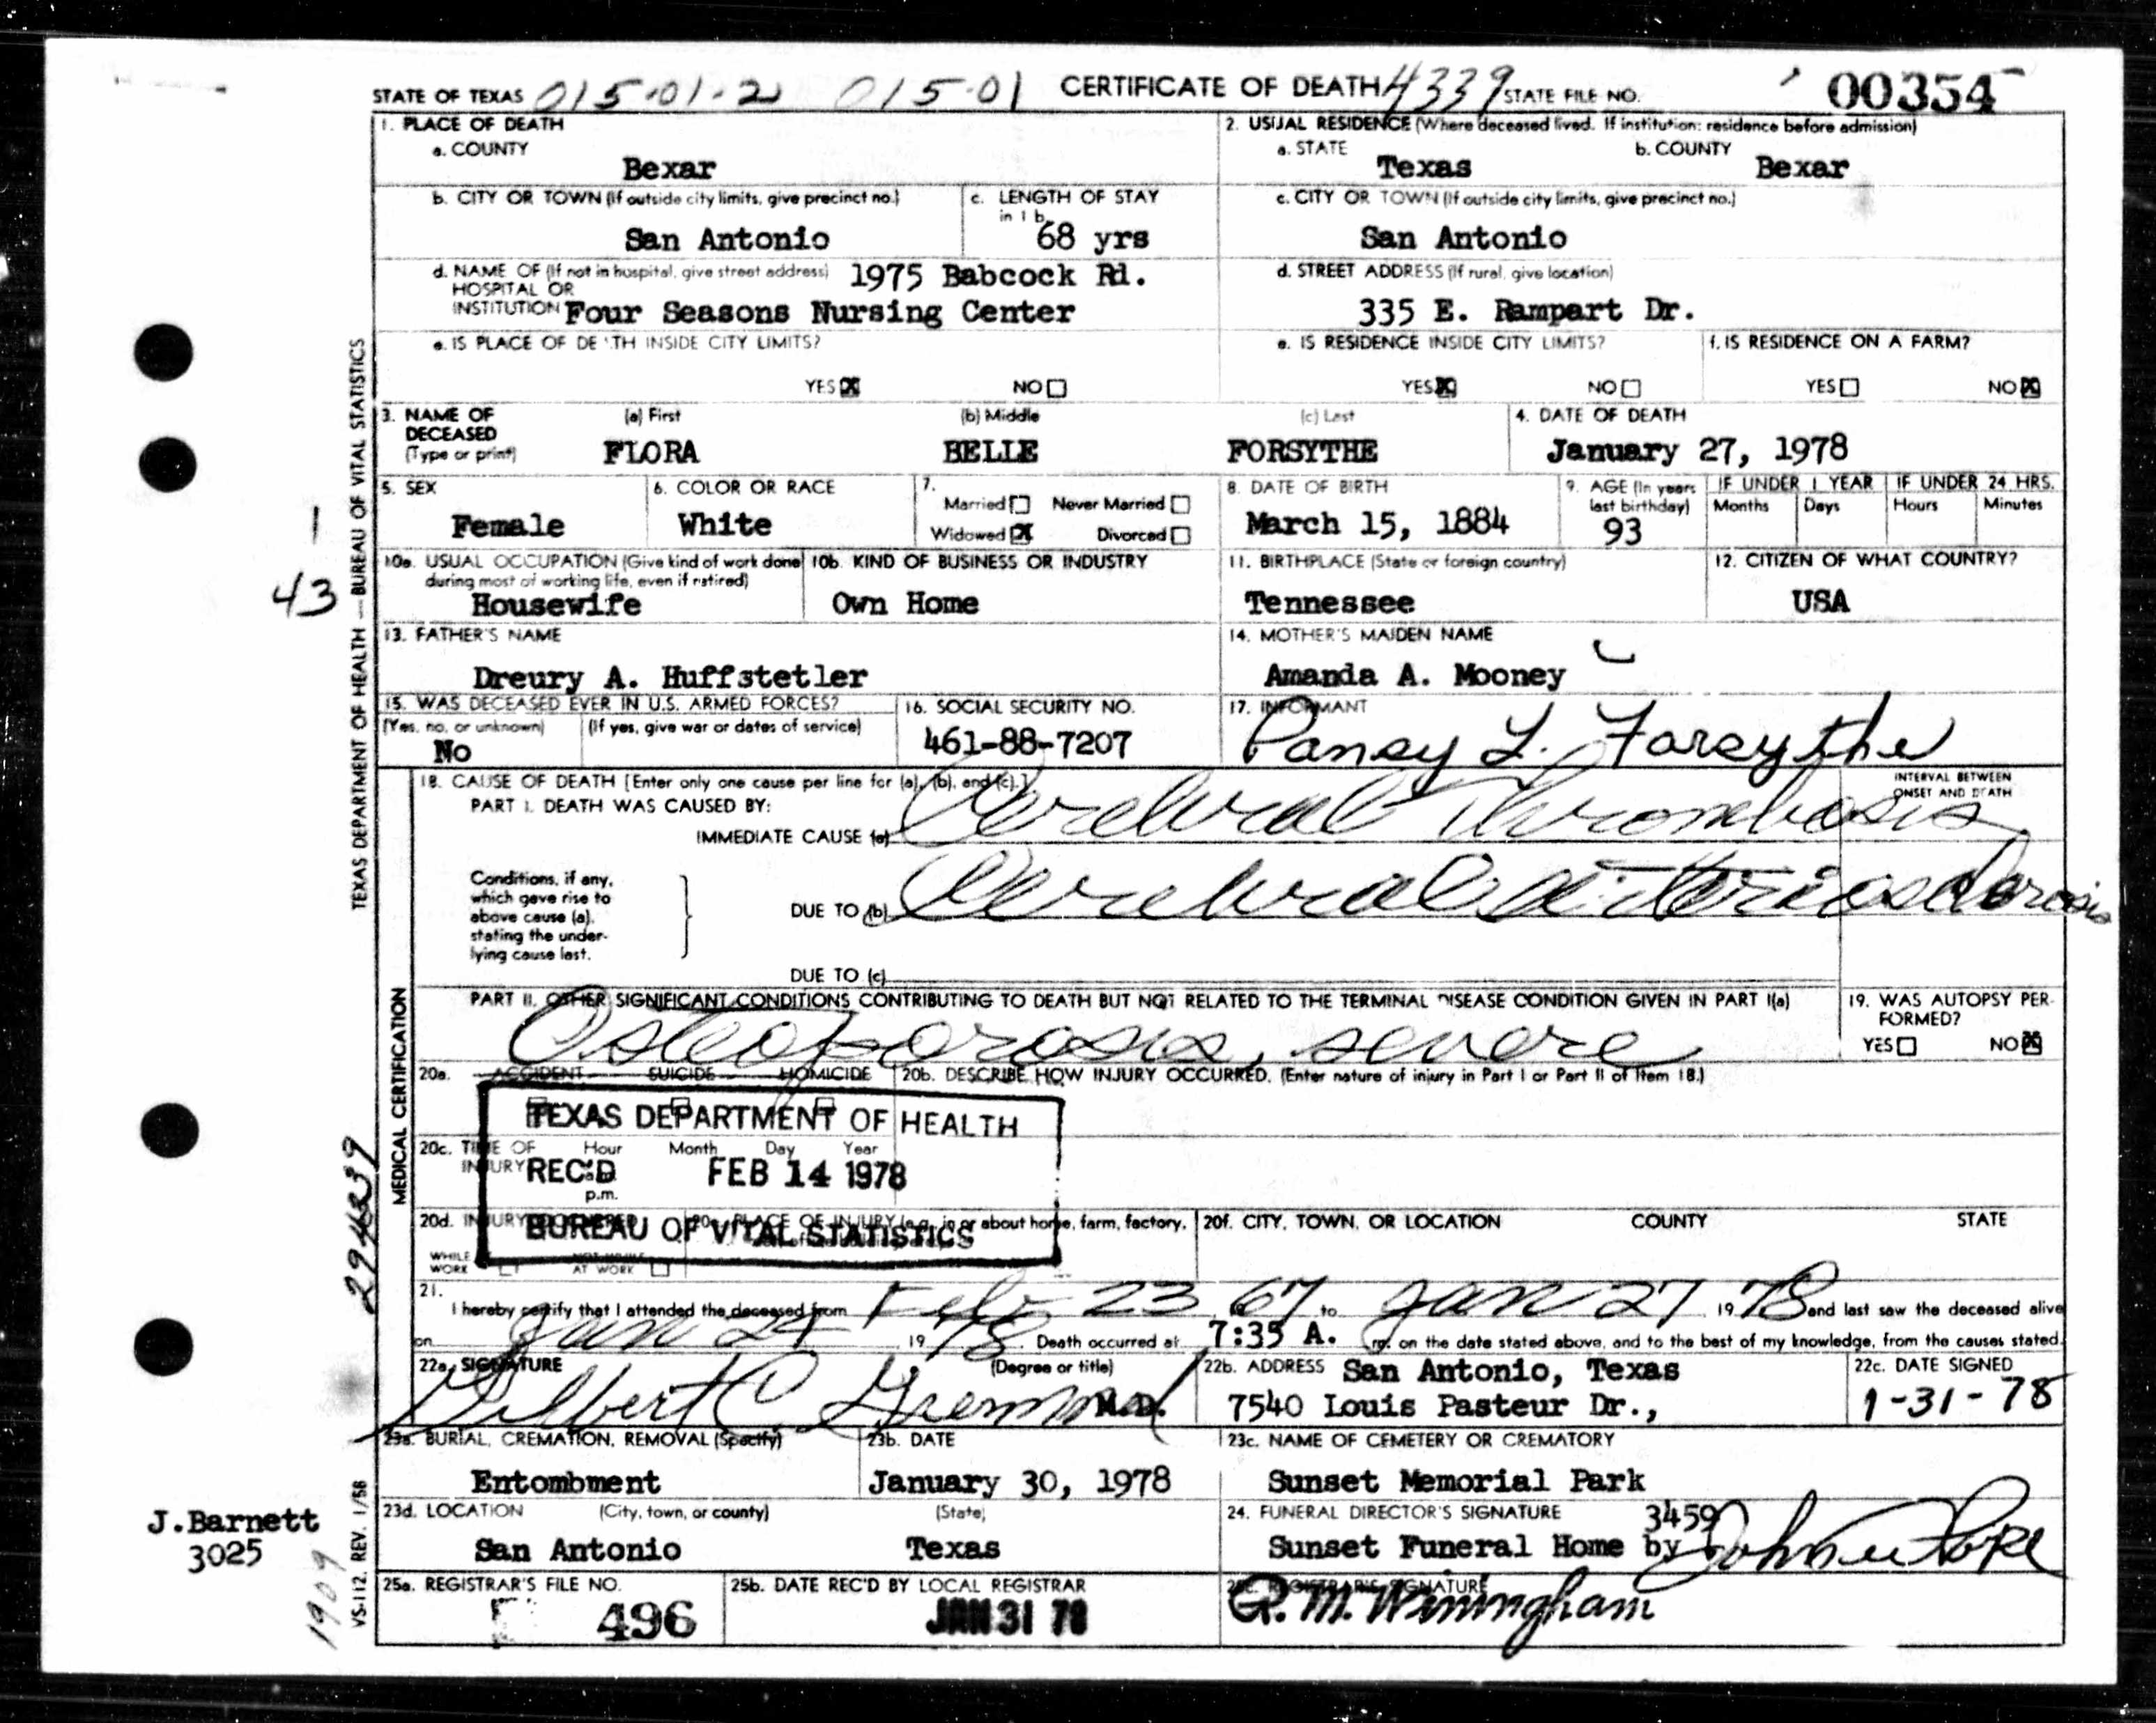 STATE OF TEXAS 015-01-2 015-01 CERTIFICATE OF DEATH 4339 STATE FILE NO. 00354
1. PLACE OF DEATH
a. COUNTY
Bexar
2. USUAL RESIDENCE (Where deceased lived. If institution: residence before admission)
a. STATE b. COUNTY
Texas Bexar
b. CITY OR TOWN (If outside city limits, give precinct no.)
San Antonio
c. LENGTH OF STAY
in 1 b.
68 yrs
c. CITY OR TOWN (If outside city limits, give precinct no.)
San Antonio
d. NAME OF (If not in hospital, give street address) 1975 Babcock Rd.
HOSPITAL OR
INSTITUTION Four Seasons Nursing Center
d. STREET ADDRESS (If rural, give location)
335 E. Rampart Dr.
e. IS PLACE OF DE TH INSIDE CITY LIMITS?
YES NO
e. IS RESIDENCE INSIDE CITY LIMITS?
YES NO
f. IS RESIDENCE ON A FARM?
YES NO
3. NAME OF
DECEASED
(Type or print)
(a) First (b) Middle (c) Last
FLORA BELLE FORSYTHE
4. DATE OF DEATH
January 27, 1978
5. SEX
Female
6. COLOR OR RACE
White
7.
Married Never Married
Widowed Divorced
8. DATE OF BIRTH
March 15, 1884
9. AGE (In years
last birthday)
93
IF UNDER 1 YEAR
Months Days
IF UNDER 24 HRS.
Hours Minutes
10a. USUAL OCCUPATION (Give kind of work done
during most of working life, even if retired)
Housewife
10b. KIND OF BUSINESS OR INDUSTRY
Own Home
11. BIRTHPLACE (State or foreign country)
Tennessee
12. CITIZEN OF WHAT COUNTRY?
USA
13. FATHER'S NAME
Dreury A. Huffstetler
14. MOTHER'S MAIDEN NAME
Amanda A. Mooney
15. WAS DECEASED EVER IN U.S. ARMED FORCES?
(Yes, no, or unknown) (If yes, give war or dates of service)
No
16. SOCIAL SECURITY NO.
461-88-7207
17. INFORMANT
Pansy L. Forsythe
18. CAUSE OF DEATH [Enter only one cause per line for (a), (b), and (c).]
PART I. DEATH WAS CAUSED BY:
IMMEDIATE CAUSE (a) Cerebral Thrombosis
INTERVAL BETWEEN
ONSET AND DEATH
Conditions, if any,
which gave rise to
above cause (a),
stating the under-
lying cause last.
DUE TO (b) Cerebral Arteriosclerosis
DUE TO (c)
PART II. OTHER SIGNIFICANT CONDITIONS CONTRIBUTING TO DEATH BUT NOT RELATED TO THE TERMINAL DISEASE CONDITION GIVEN IN PART I(a)
Osteoporosis, severe
19. WAS AUTOPSY PER-
FORMED?
YES NO
20a. ACCIDENT SUICIDE HOMICIDE
20b. DESCRIBE HOW INJURY OCCURRED. (Enter nature of injury in Part I or Part II of Item 18.)
TEXAS DEPARTMENT OF HEALTH
20c. TIME OF Hour Month Day Year
INJURY
p.m.
REC'D FEB 14 1978
BUREAU OF VITAL STATISTICS
20d. INJURY
WHILE
WORK
NOT WHILE
AT WORK
PLACE OF INJURY (e.g., in or about home, farm, factory,
20f. CITY, TOWN, OR LOCATION COUNTY STATE
21.
I hereby certify that I attended the deceased from Feb 23, 67, to Jan 27, 1978 and last saw the deceased alive
on Jan 24 1978 Death occurred at 7:35 A. m. on the date stated above, and to the best of my knowledge, from the causes stated.
22a. SIGNATURE (Degree or title)
Gilbert C. M.D.
22b. ADDRESS San Antonio, Texas
7540 Louis Pasteur Dr.,
22c. DATE SIGNED
1-31-78
23a. BURIAL, CREMATION, REMOVAL (Specify)
Entombment
23b. DATE
January 30, 1978
23c. NAME OF CEMETERY OR CREMATORY
Sunset Memorial Park
23d. LOCATION (City, town, or county) (State)
San Antonio Texas
24. FUNERAL DIRECTOR'S SIGNATURE 3459
Sunset Funeral Home by
25a. REGISTRAR'S FILE NO.
496
25b. DATE REC'D BY LOCAL REGISTRAR
JAN 31 78
25c. REGISTRAR'S SIGNATURE
R. M. Winingham
TEXAS DEPARTMENT OF HEALTH — BUREAU OF VITAL STATISTICS
MEDICAL CERTIFICATION
VS-112, REV. 1/58
1
43
J.Barnett
3025
1909